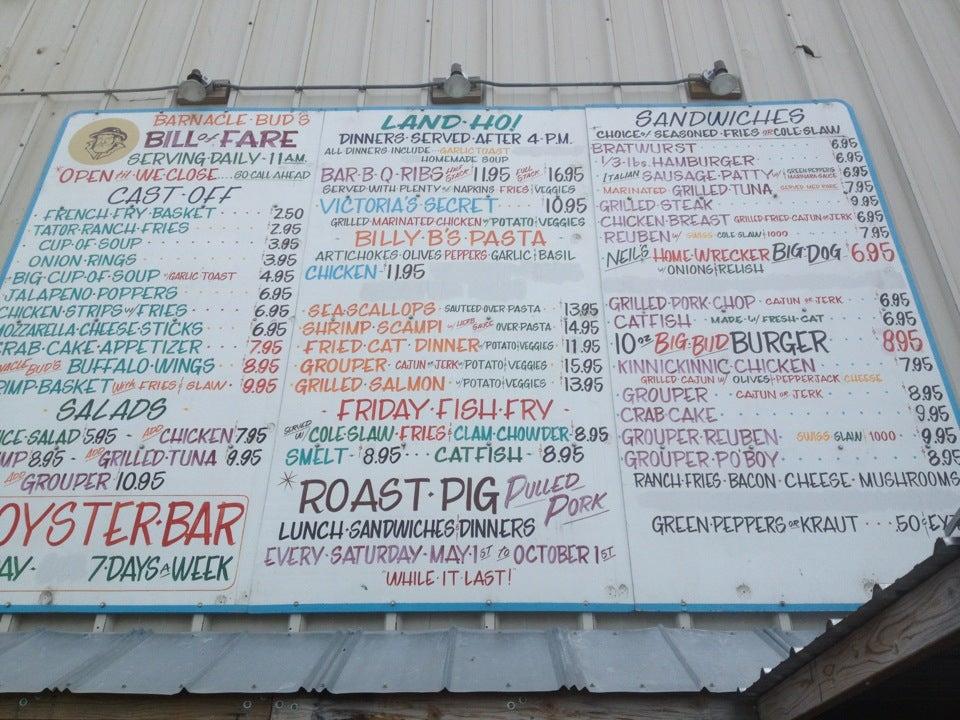 BARNACLE·BUD'S
BILL of FARE
SERVING·DAILY·11AM.
"OPEN·TIL·WE·CLOSE....SO CALL AHEAD
CAST·OFF
FRENCH·FRY·BASKET 2.50
TATOR·RANCH·FRIES 2.95
CUP·OF·SOUP 3.95
ONION·RINGS 3.95
BIG·CUP·OF·SOUP W/GARLIC TOAST 4.95
JALAPENO·POPPERS 6.95
CHICKEN·STRIPS W/ FRIES 6.95
MOZZARELLA·CHEESE·STICKS 6.95
CRAB·CAKE·APPETIZER 7.95
BUD'S BUFFALO·WINGS 8.95
IMP·BASKET With FRIES & SLAW 9.95
SALADS
ICE·SALAD 5.95 - ADD CHICKEN 7.95
MP 8.95 - ADD GRILLED·TUNA 9.95
ADD GROUPER 10.95
OYSTER·BAR
AY· 7·DAYS A WEEK
LAND·HO!
DINNERS·SERVED·AFTER 4·P.M.
ALL DINNERS·INCLUDE·GARLIC TOAST
HOMEMADE SOUP
BAR·B·Q·RIBS HALF STACK 11.95 FULL STACK 16.95
SERVED·WITH PLENTY of NAPKINS FRIES & VEGGIES
VICTORIA'S SECRET 10.95
GRILLED·MARINATED·CHICKEN W/ POTATO & VEGGIES
BILLY·B'S·PASTA
ARTICHOKES·OLIVES·PEPPERS·GARLIC & BASIL
CHICKEN·11.95
SEA·SCALLOPS · SAUTEED OVER·PASTA 13.95
SHRIMP·SCAMPI W/ HERB SAUCE OVER·PASTA 14.95
FRIED·CAT DINNER W/ POTATO & VEGGIES 11.95
GROUPER · CAJUN or JERK W/ POTATO & VEGGIES 15.95
GRILLED·SALMON W/ POTATO & VEGGIES 13.95
- FRIDAY·FISH·FRY -
SERVED W/ COLE·SLAW·FRIES & CLAM·CHOWDER·8.95
SMELT · 8.95 · · · CATFISH · 8.95
*ROAST·PIG PULLED PORK
LUNCH·SANDWICHES & DINNERS
EVERY·SATURDAY·MAY·1ST to OCTOBER 1ST
"WHILE·IT·LAST!"
SANDWICHES
CHOICE of SEASONED·FRIES OR COLE·SLAW
BRATWURST 6.95
1/3·lbs. HAMBURGER 6.95
ITALIAN SAUSAGE·PATTY W/ GREEN PEPPERS & MARINARA SAUCE 6.95
MARINATED·GRILLED·TUNA, SERVED MED RARE 7.95
GRILLED·STEAK 9.95
CHICKEN·BREAST GRILLED·FRIED·CAJUN or JERK 6.95
REUBEN W/ SWISS·COLE SLAW & 1000 7.95
NEIL'S HOME·WRECKER BIG·DOG 6.95
W/ ONIONS & RELISH
GRILLED·PORK·CHOP · CAJUN or JERK 6.95
CATFISH · MADE·W/ FRESH·CAT 6.95
10oz BIG·BUD BURGER 8.95
KINNICKINNIC·CHICKEN 7.95
GRILLED·CAJUN W/ OLIVES & PEPPERJACK CHEESE
GROUPER CAJUN or JERK 8.95
CRAB·CAKE 9.95
GROUPER·REUBEN SWISS·SLAW & 1000 9.95
GROUPER·PO'BOY 8.95
RANCH·FRIES·BACON·CHEESE·MUSHROOMS
GREEN·PEPPERS or KRAUT · · · .50¢